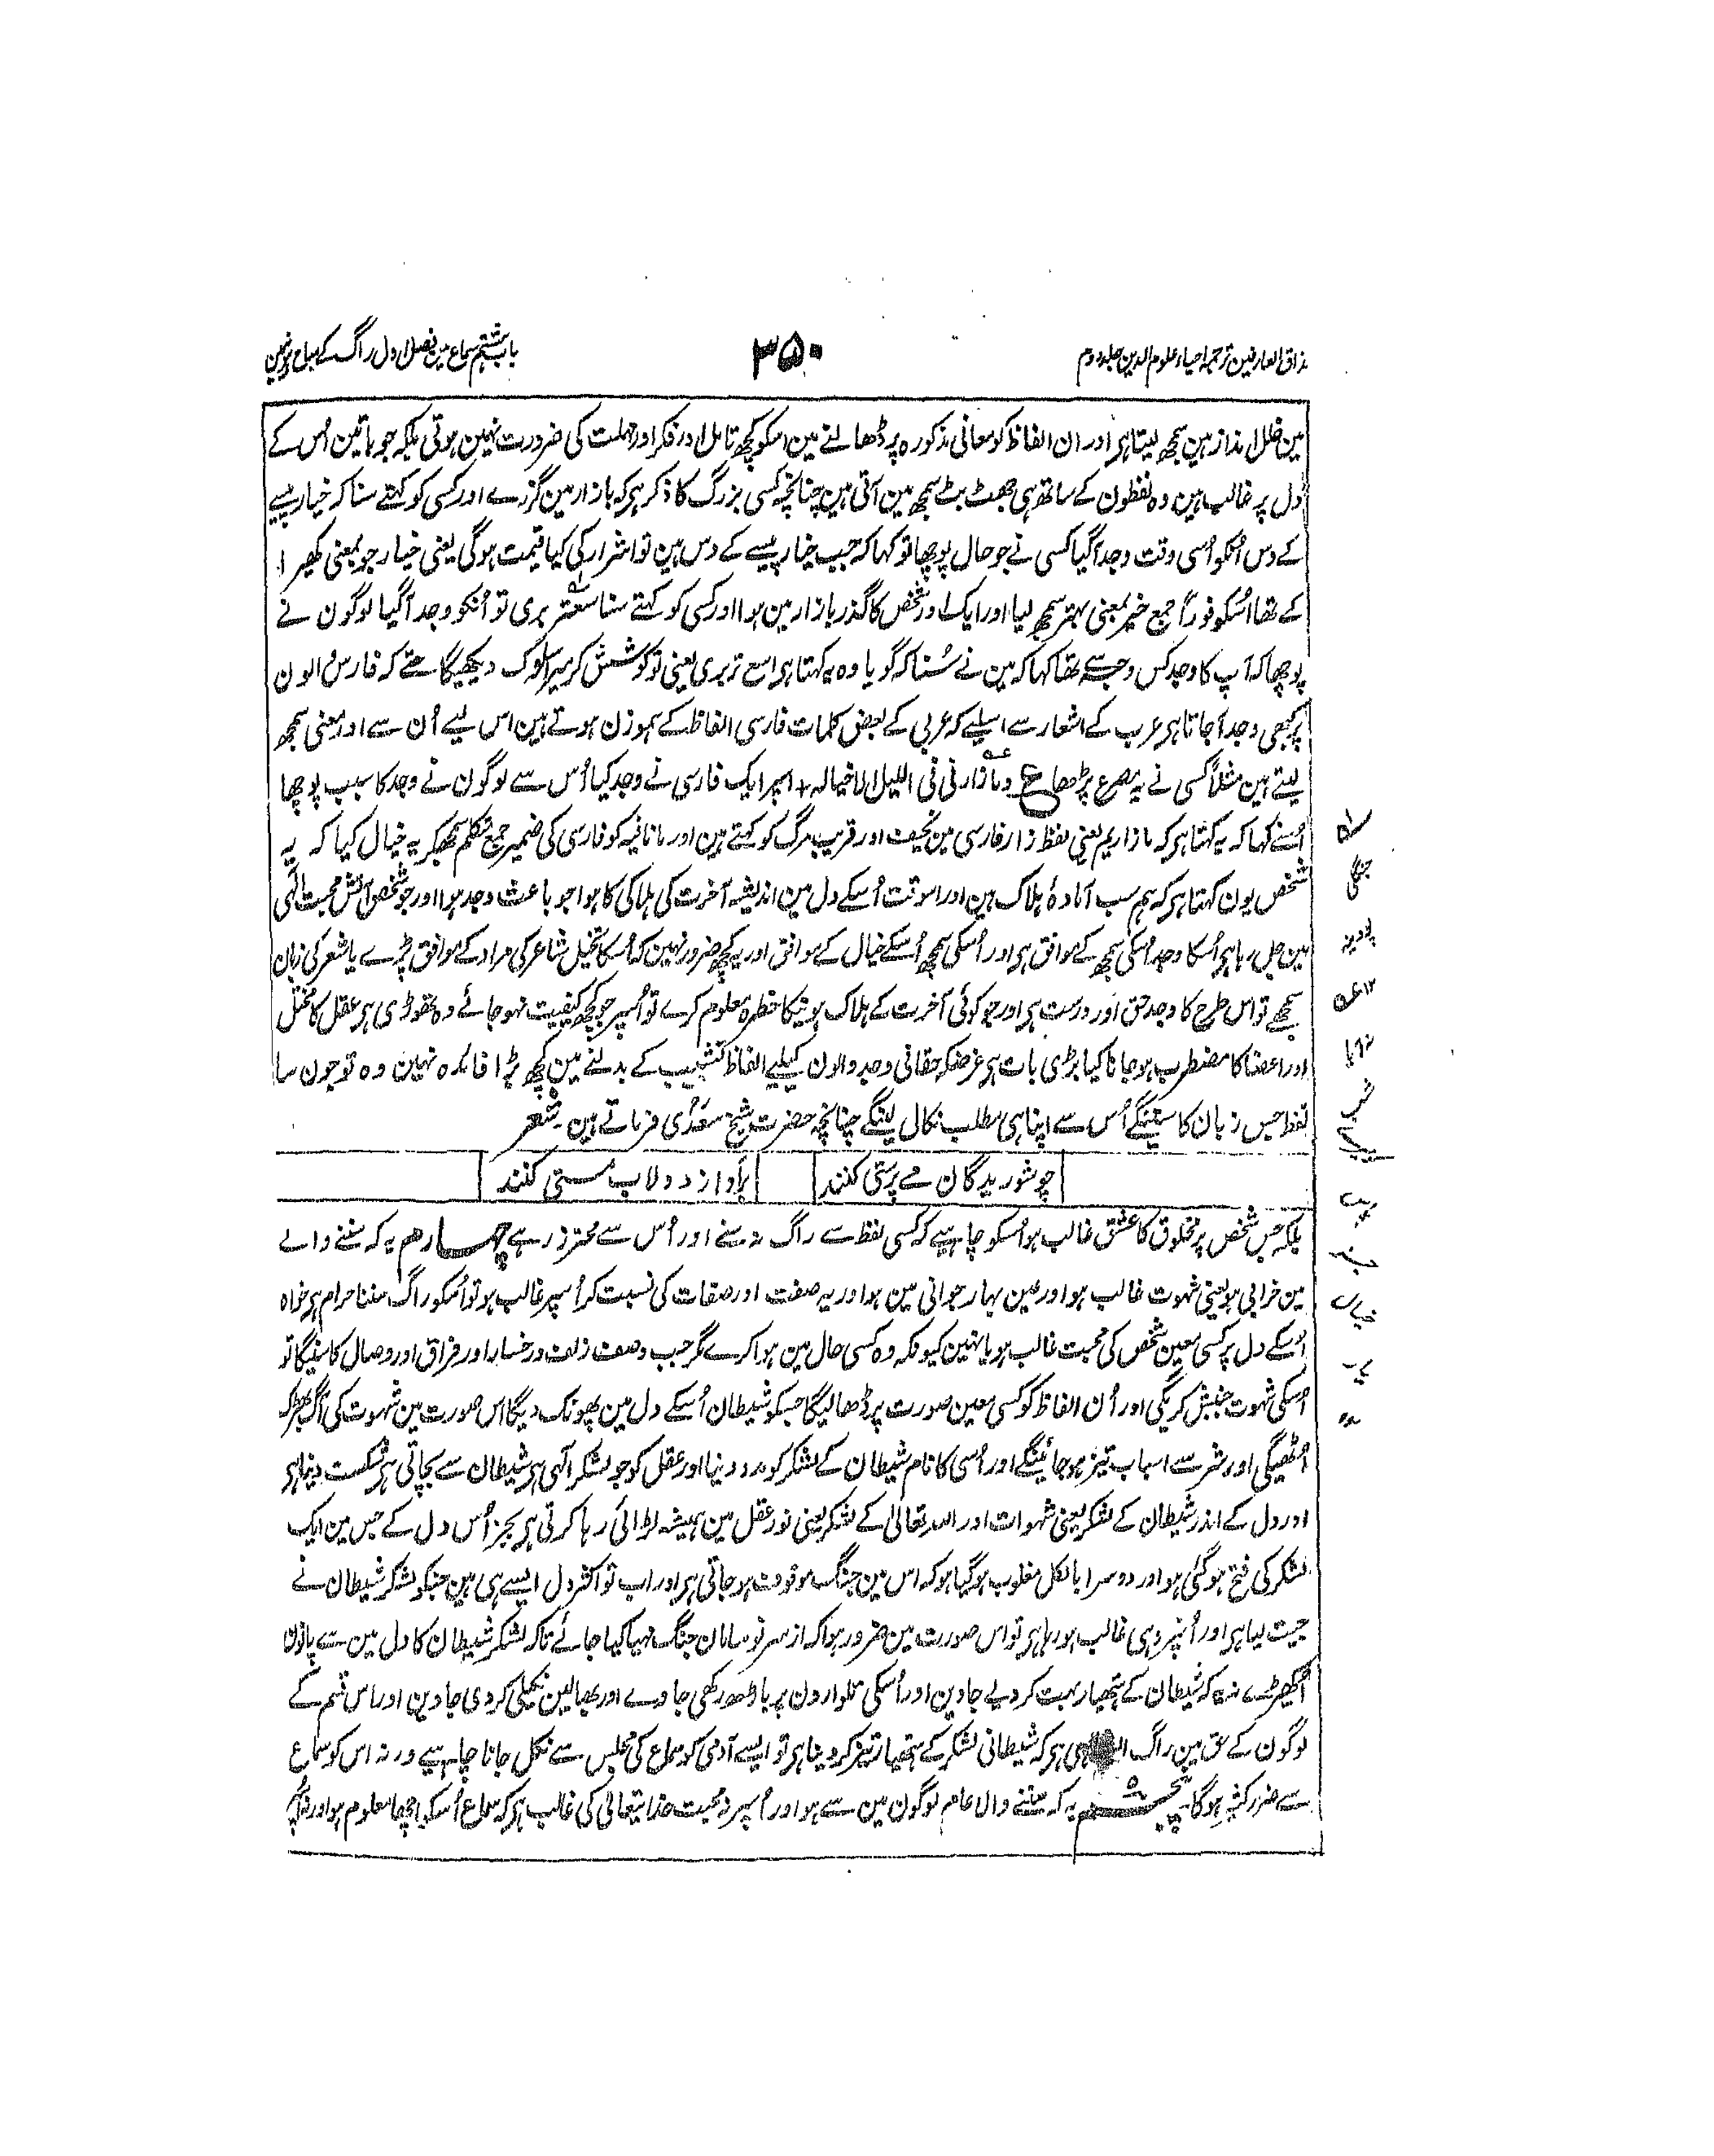 مذاق العارفین ترجمہ احیاء علوم الدین جلد دوم
۳۵۰
باب ہشتم سماع مین فصل اول راگ کے مباح ہونیمین
مین خلل انداز ہین سمجھ لیتا ہی اور ان الفاظ کو معانی مذکورہ پر ڈھالنے مین اسکو کچھ تامل اور فکر اور مہلت کی ضرورت نہین ہوتی بلکہ جو باتین اُس کے
دل پر غالب ہین وہ لفظون کے ساتھ ہی جھٹ پٹ سمجھ مین آتی ہین چنانچہ کسی بزرگ کا ذکر ہی کہ بازار مین گزرے اور کسی کو کہتے سنا کہ خیار پیسے
کے دس اُنکو اُسی وقت وجد آگیا کسی نے جو حال پوچھا تو کہا کہ جب خیار پیسے کے دس ہین تو اشرار کی کیا قیمت ہوگی یعنی خیار جو بمعنی کھیرا
کے تھا اُسکو فوراً جمع خیر بمعنی بہتر سمجھ لیا اور ایک اور شخص کا گذر بازار مین ہوا اور کسی کو کہتے سنا سعتر بری تو اُنکو وجد آگیا لوگون نے
پوچھا کہ آپ کا وجد کس وجہ سے تھا کہا کہ مین نے سُنا کہ گویا وہ یہ کہتا ہی اسع تر بری یعنی تو کوشش کر میرا سلوک دیکھیگا حتے کہ فارس والون
پر کبھی وجد آجاتا ہی عرب کے اشعار سے اسلیے کہ عربی کے بعض کلمات فارسی الفاظ کے ہموزن ہوتے ہین اس لیے اُن سے اور معنی سمجھ
لیتے ہین مثلاً کسی نے یہ مصرع پڑھا ع وما زارنی فی اللیل الا خیالہ + اسپر ایک فارسی نے وجد کیا اُس سے لوگون نے وجد کا سبب پوچھا
اُسنے کہا کہ یہ کہتا ہی کہ ما زاریم یعنی لفظ زار فارسی مین نحیف اور قریب مرگ کو کہتے ہین اور ما نافیہ کو فارسی کی ضمیر جمع متکلم سمجھکر یہ خیال کیا کہ یہ
شخص یون کہتا ہی کہ ہم سب آمادۂ ہلاک ہین اور اسوقت اُسکے دل مین اندیشہ آخرت کی ہلاکی کا ہوا جو باعث وجد ہوا اور جو شخص آتش محبت الٰہی
مین جل رہا ہی اُسکا وجد اُسکی سمجھ کے موافق ہی اور اُسکی سمجھ اُسکے خیال کے موافق اور یہ کچھ ضرور نہین کہ اُسکا تخیل شاعر کی مراد کے موافق پڑے یا شعر کی زبان
سمجھے تو اس طرح کا وجد حق اور درست ہی اور جو کوئی آخرت کے ہلاک ہونیکا خطرہ معلوم کرے تو اُسپر جو کچھ کیفیت نہوجائے وہ تھوڑی ہی عقل کا مختل
اور اعضا کا مضطرب ہوجانا کیا بڑی بات ہی غرضکہ حقانی وجد والون کیلیے الفاظ تشبیب کے بدلنے مین کچھ بڑا فائدہ نہین وہ تو جون سا
لفظ جس زبان کا سنینگے اُس سے اپنا ہی مطلب نکال لینگے چنانچہ حضرت شیخ سعدی فرماتے ہین شعر
چو شوریدگان مے پرستی کنند
بآواز دولاب مستی کنند
بلکہ جس شخص پر مخلوق کا عشق غالب ہو اُسکو چاہیے کہ کسی لفظ سے راگ نہ سنے اور اُس سے محترز رہے چہارم یہ کہ سننے والے
مین خرابی ہو یعنی شہوت غالب ہو اور عین بہار جوانی مین ہو اور یہ صفت اور صفات کی نسبت کر اُسپر غالب ہو تو اُسکو راگ سننا حرام ہی خواہ
اُسکے دل پر کسی معین شخص کی محبت غالب ہو یا نہین کیونکہ وہ کسی حال مین ہوا کرے مگر جب وصف زلف و رخسار اور فراق اور وصال کا سنیگا تو
اُسکی شہوت جنبش کریگی اور اُن الفاظ کو کسی معین صورت پر ڈھالیگا جسکو شیطان اُسکے دل مین پھونک دیگا اس صورت مین شہوت کی آگ بھڑک
اُٹھیگی اور شر سے اسباب تیز ہوجائینگے اور اُسی کا نام شیطان کے لشکر کو مدد دینا اور عقل کو جو لشکر الٰہی ہی شیطان سے بچاتی ہی شکست دینا ہی
اور دل کے اندر شیطان کے لشکر یعنی شہوات اور اللہ تعالیٰ کے لشکر یعنی نور عقل مین ہمیشہ لڑائی رہا کرتی ہی بجز اُس دل کے جس مین ایک
لشکر کی فتح ہوگئی ہو اور دوسرا بالکل مغلوب ہوگیا ہو کہ اس مین جنگ موقوف ہوجاتی ہی اور اب تو اکثر دل ایسے ہی ہین جنکو لشکر شیطان نے
جیت لیا ہی اور اُنپر وہی غالب ہو رہا ہی تو اس صورت مین ضرور ہوا کہ از سر نو سامان جنگ مہیا کیا جائے تاکہ لشکر شیطان کا دل مین سے پانوُن
اُکھڑے نہ یہ کہ شیطان کے ہتھیار بہت کر دیے جاوین اور اُسکی تلوارون پر باڑھ رکھی جاوے اور بھالین نکیلی کر دی جاوین اور اس قسم کے
لوگون کے حق مین راگ ہی کہ شیطانی لشکر کے ہتھیار تیز کر دینا ہی تو ایسے آدمی کو سماع کی مجلس سے نکل جانا چاہیے ورنہ اس کو سماع
سے ضرر کثیر ہوگا پنجم یہ کہ سننے والا عام لوگون مین سے ہو اور اُسپر نہ محبت خدا تعالیٰ کی غالب ہی کہ سماع اُسکو اچھا معلوم ہو اور نہ
جنگلی
پودینہ